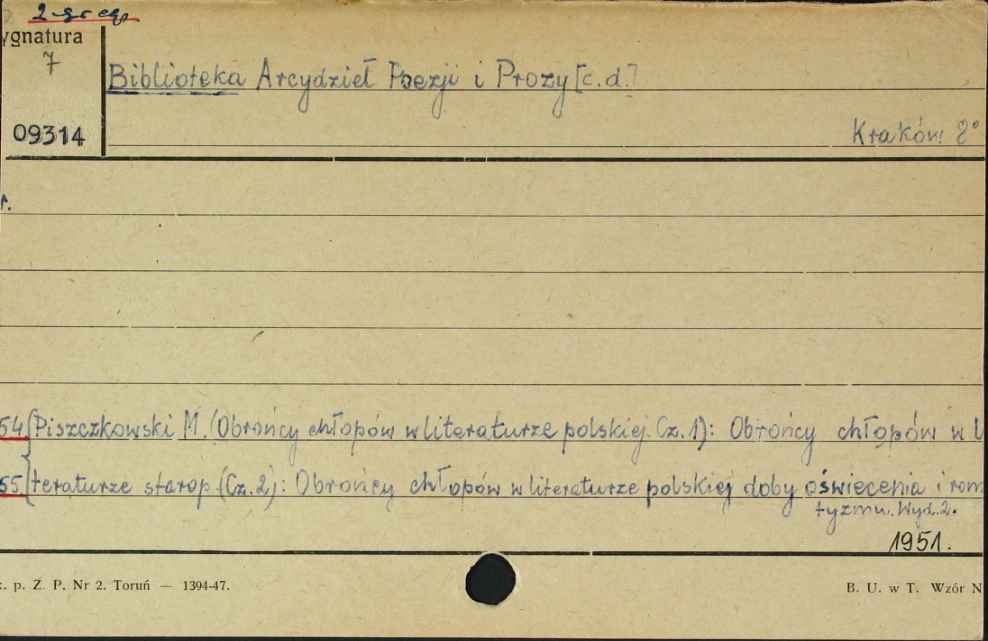 2 gr eg.
ygnatura
7
Biblioteka Arcydzieł Poezji i Prozy [c.d.]
09314
Kraków. 8°
r.
54 {Piszczkowski M. (Obrońcy chłopów w literaturze polskiej. Cz. 1): Obrońcy chłopów w li
55 {teraturze starop (Cz. 2): Obrońcy chłopów w literaturze polskiej doby oświecenia i rom
tyzmu. Wyd. 2.
1951.
. p. Z. P. Nr 2. Toruń — 1394-47.
B. U. w T. Wzór N